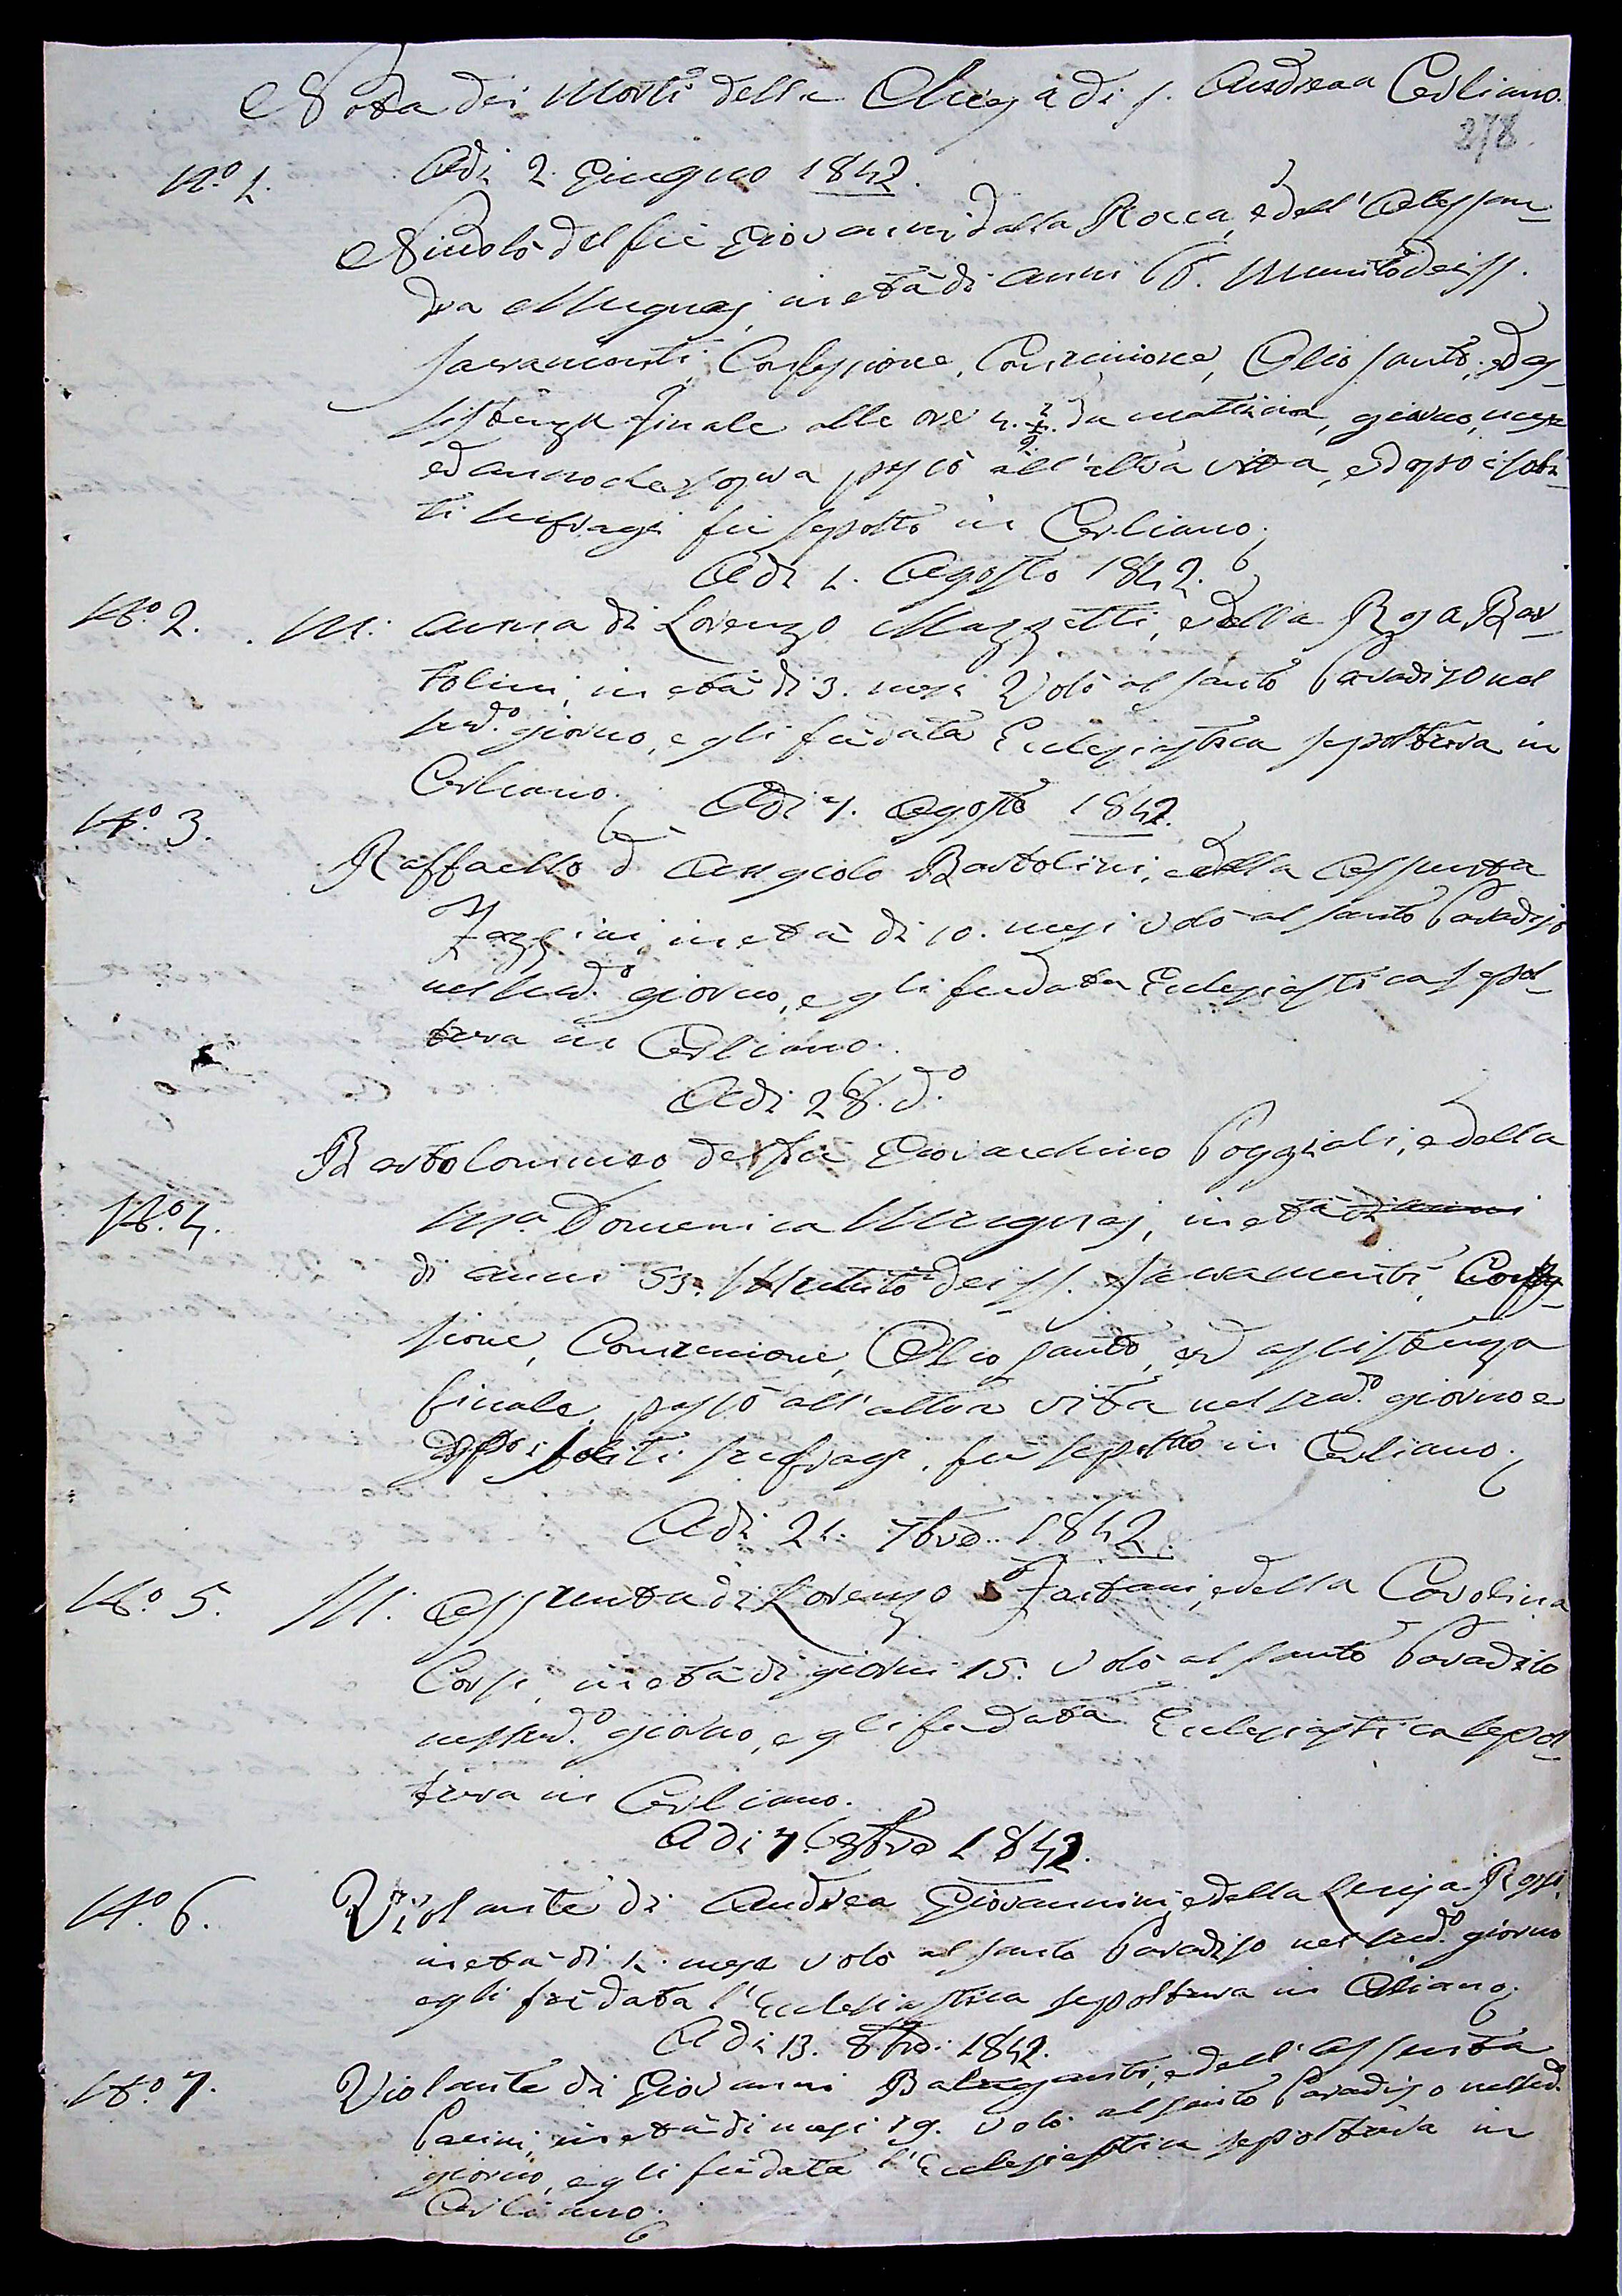 Nota dei Morti della Chiesa di S. Andrea a Cerliano.
278.
N.° 1. Adì 2. Giugno 1842.
Niccolò del fù Giovanni dalla Rocca, e dell'Alessan-
dra Mugnaj, in età di anni Munito dei SS.
Sacramenti, Confessione, Comunione, Olio Santo, ed as-
sistenza finale alle ore 4. ½. da mattina, giorno, mese
ed anno che sopra passò all'altra vita, e dopo i soli-
ti suffragi fù sepolto in Cerliano.
Adì 1. Agosto 1842.
N.° 2. M: Anna di Lorenzo Mazzetti, e della Rosa Bar-
tolini, in età di 3. mesi Volò al Santo Paradiso nel
sud.° giorno, e gli fù data Eclesiastica sepoltura in
Cerliano.
Adì 7. Agosto 1842.
N.° 3.
Raffaello d Angiolo Bartolini, e della Assunta
Fazzini, in età di 10. mesi volò al Santo Paradiso
nel sud.° giorno, e gli fù data Eclesiastica sepol-
tura in Cerliano.
Adì 28. d.°
Bartolommeo del fù Giovacchino Poggiali, e della
N.° 4. M.a Domenica Mugnaj, in età di anni
di anni 53. Munito dei SS. Sacramenti, Confes-
sione, Comunione, Olio Santo, ed assistenza
finale, passò all'altra vita nel sud.° giorno e
dopo i soliti suffragi, fù sepolto in Cerliano.
Adì 21. 7bre. 1842.
N.° 5. M: Assunta di Lorenzo Faitani, e della Carolina
Corsi, in età di giorni 15. Volò al Santo Paradiso
nel sud.° giorno, e gli fù data Eclesiastica sepol-
tura in Cerliano.
Adì 7. 8bre 1842.
N.° 6. Violante di Andrea Giovannini, e della Luisa Rossi,
in età di 1. mese volò al Santo Paradiso nel sud.° giorno
e gli fù data l'Eclesiastica sepoltura in Cerliano.
Adì 13. 8bre. 1842.
N.° 7. Violante di Giovanni Baluganti, e dell'Assunta
Pacini, in età di mesi 19. volò al Santo Paradiso nel sud.
giorno, e gli fù data l'Eclesiastica sepoltura in
Cerliano.